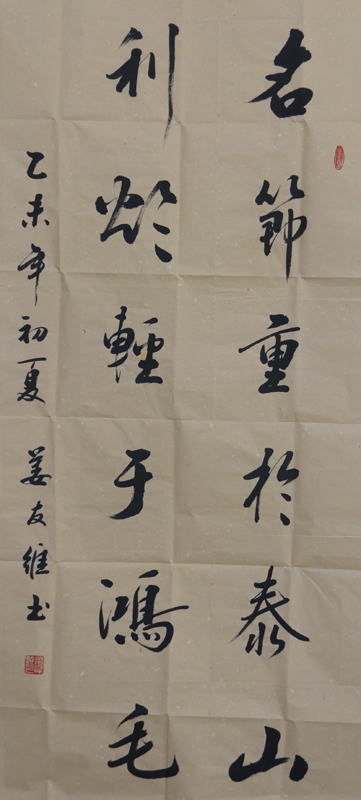 名節重於泰山
利欲輕于鴻毛
乙未年初夏 姜友維书